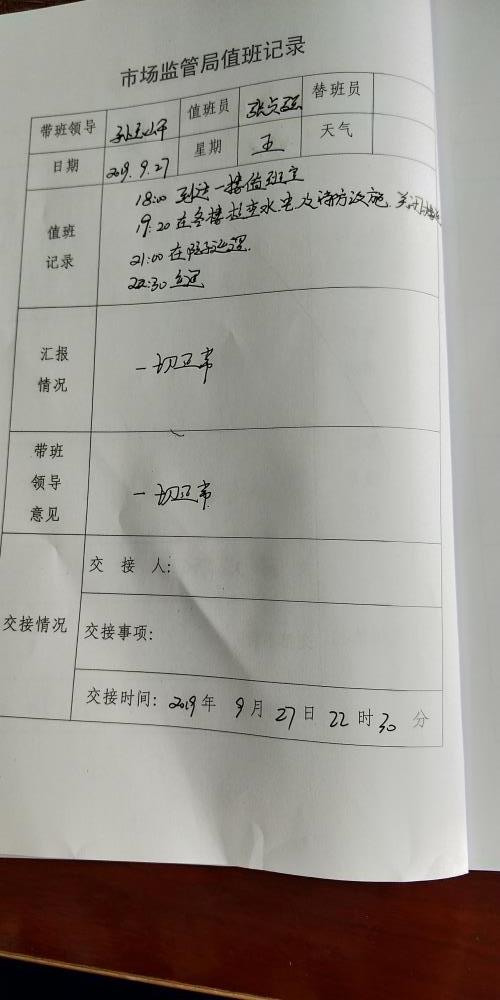 市场监管局值班记录
带班领导 值班员 替班员
日期 2019.9.27 星期 五 天气
值班记录
18:00 到达一楼值班室
19:20 在各楼检查水电及消防设施,关闭
21:00 在院巡逻.
22:30
汇报情况
一切正常
带班领导意见
一切正常
交接情况
交接人:
交接事项:
交接时间: 2019年 9月 27日 22时 30 分